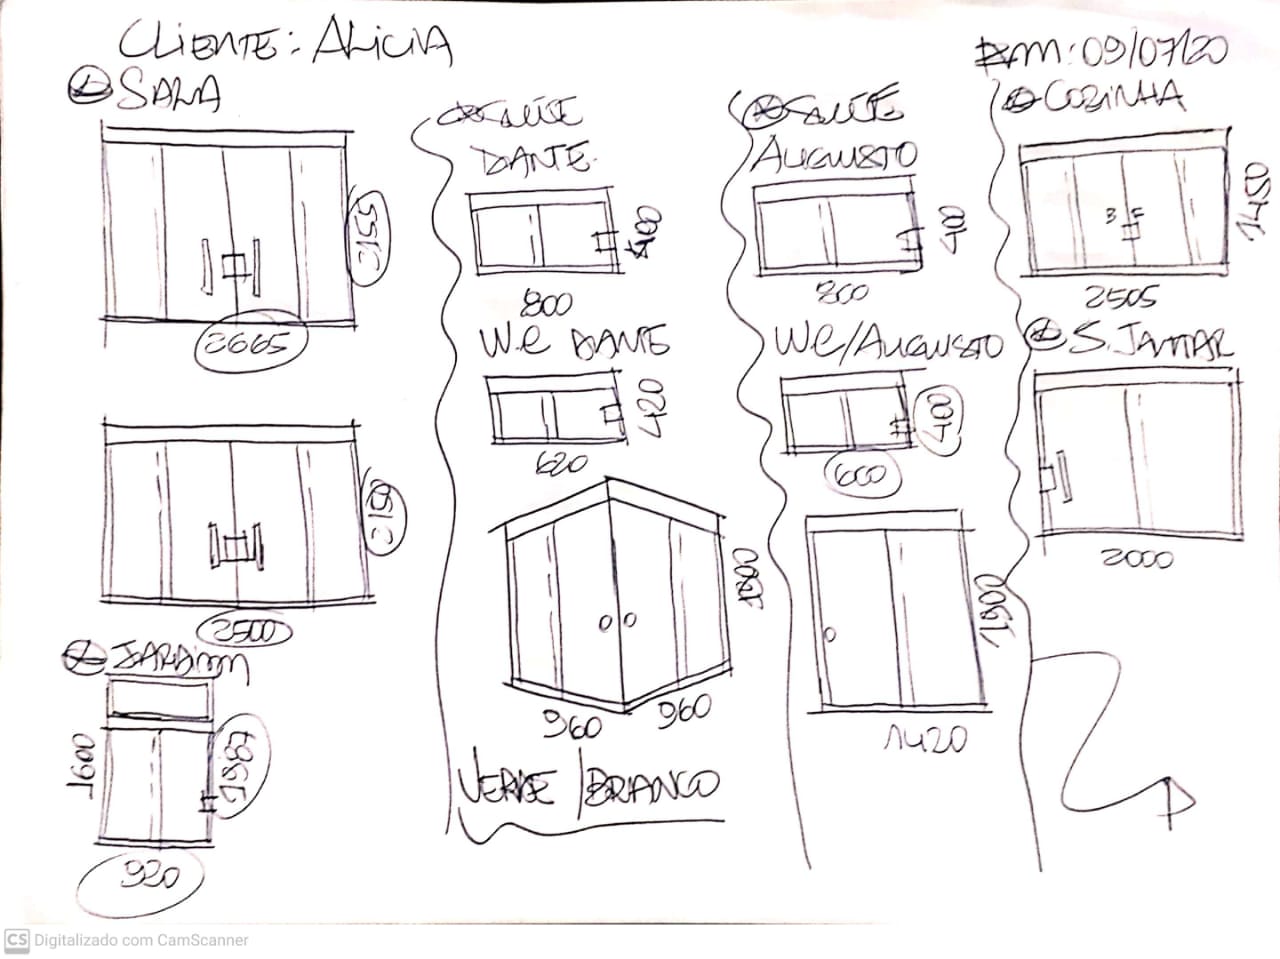 CLIENTE: ALICIA
09/07/20
SALA
2155
2665
2150
2500
JARDIM
1600
1987
920
SUÍTE
DANTE
400
800
W.C DANTE
420
620
1890
960 960
VERDE/BRANCO
SUÍTE
AUGUSTO
400
800
WC/AUGUSTO
400
600
1420
COZINHA
1450
2505
S. JANTAR
2000
CS Digitalizado com CamScanner